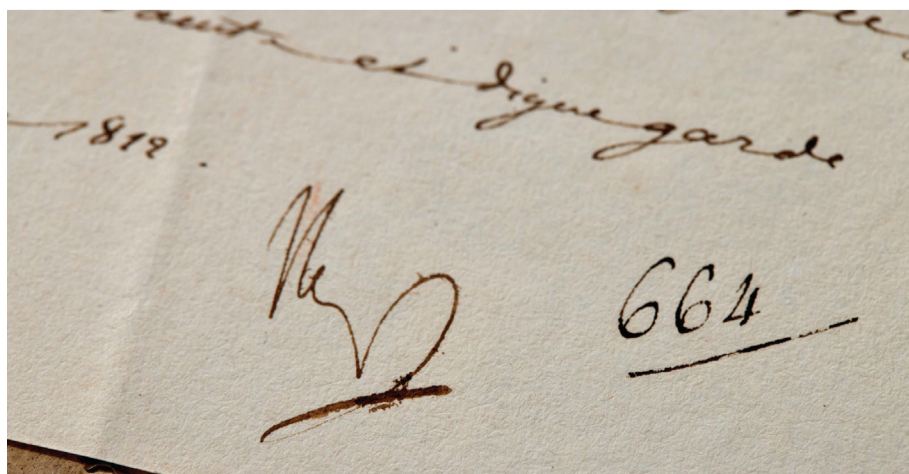 sainte et digne garde
1812.
Np
664